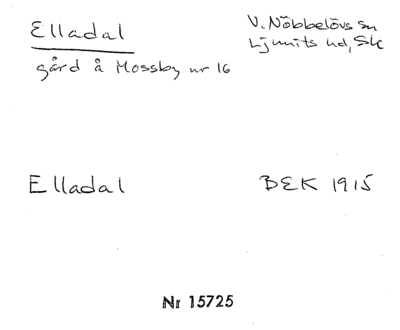 Elladal
V. Nöbbelövs sn
Ljunits hd, Sk
gård å Mossby nr 16
Elladal
BEK 1915
Nr 15725